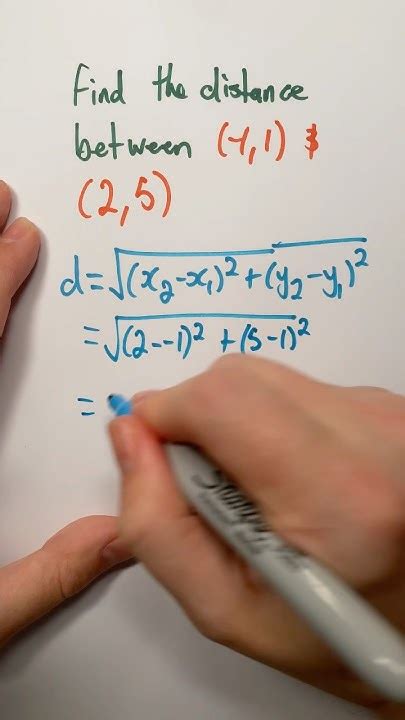 Find the distance
between (-1,1) &
(2,5)
d=√(x₂-x₁)²+(y₂-y₁)²
=√(2--1)²+(5-1)²
=
Sharpie